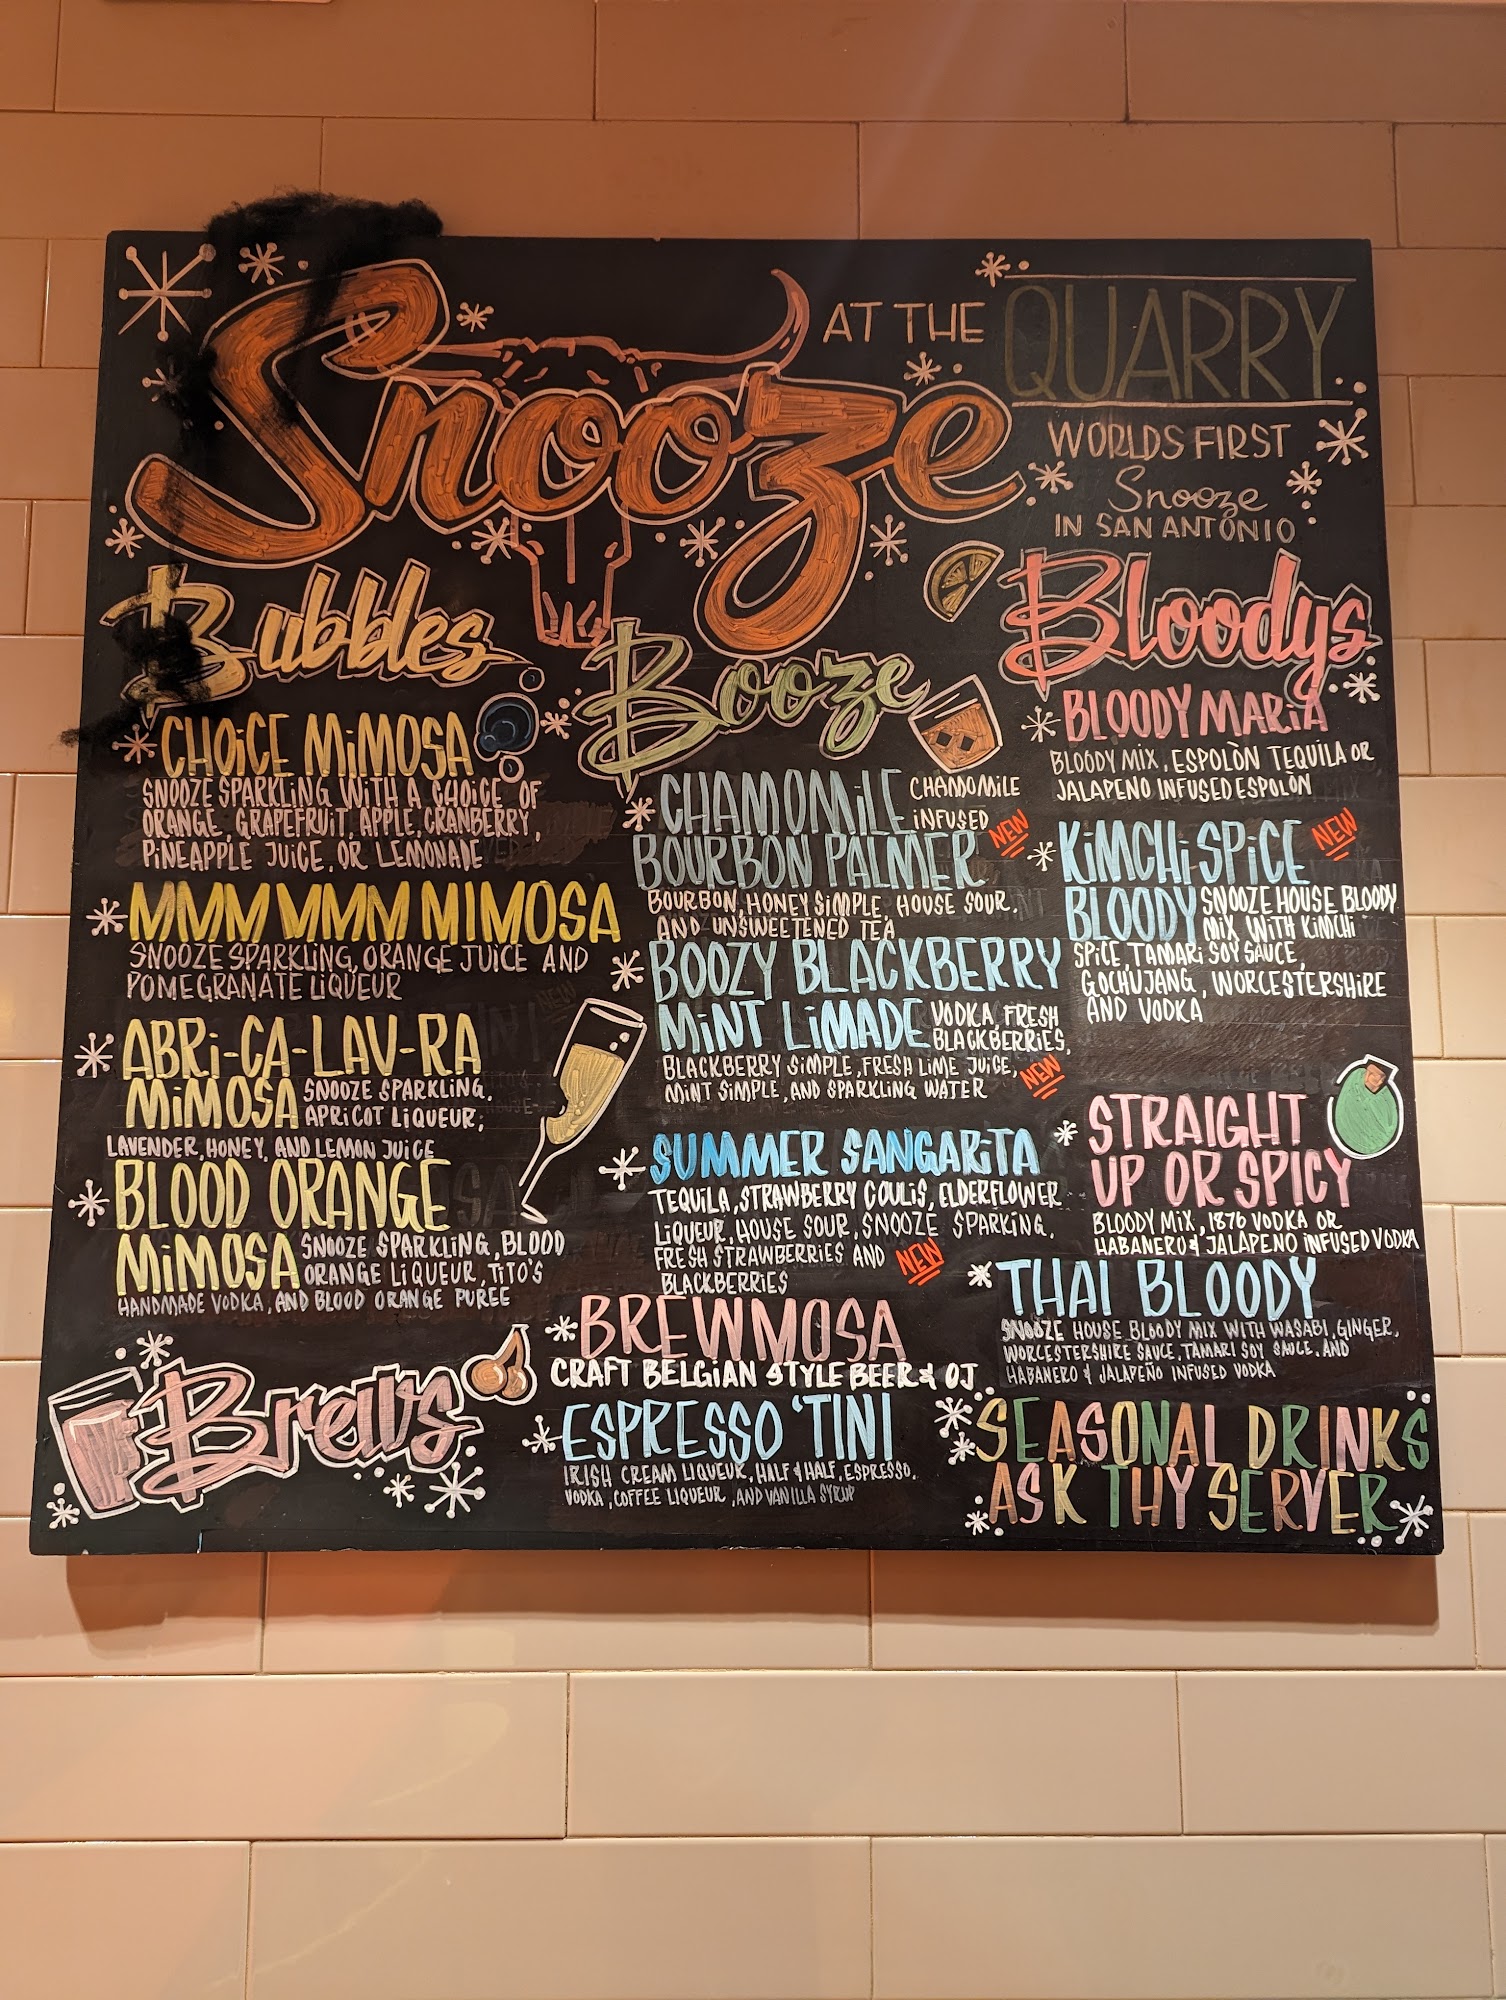 Snooze
AT THE QUARRY
WORLDS FIRST
Snooze
IN SAN ANTONIO
Bubbles
CHOICE MIMOSA
SNOOZE SPARKLING WITH A CHOICE OF
ORANGE, GRAPEFRUIT, APPLE, CRANBERRY,
PINEAPPLE JUICE, OR LEMONADE
MMM MMM MIMOSA
SNOOZE SPARKLING, ORANGE JUICE AND
POMEGRANATE LIQUEUR
ABRI-CA-LAV-RA
MIMOSA SNOOZE SPARKLING,
APRICOT LIQUEUR,
LAVENDER, HONEY, AND LEMON JUICE
BLOOD ORANGE
MIMOSA SNOOZE SPARKLING, BLOOD
ORANGE LIQUEUR, TITO'S
HANDMADE VODKA, AND BLOOD ORANGE PUREE
Brews
Booze
CHAMOMILE CHAMOMILE
INFUSED
BOURBON PALMER NEW
BOURBON, HONEY SIMPLE, HOUSE SOUR,
AND UNSWEETENED TEA
BOOZY BLACKBERRY
MINT LIMADE VODKA, FRESH
BLACKBERRIES,
BLACKBERRY SIMPLE, FRESH LIME JUICE,
MINT SIMPLE, AND SPARKLING WATER NEW
SUMMER SANGARITA
TEQUILA, STRAWBERRY COULIS, ELDERFLOWER
LIQUEUR, HOUSE SOUR, SNOOZE SPARKING,
FRESH STRAWBERRIES AND NEW
BLACKBERRIES
BREWMOSA
CRAFT BELGIAN STYLE BEER & OJ
ESPRESSO 'TINI
IRISH CREAM LIQUEUR, HALF & HALF, ESPRESSO,
VODKA, COFFEE LIQUEUR, AND VANILLA SYRUP
Bloodys
BLOODY MARIA
BLOODY MIX, ESPOLÒN TEQUILA OR
JALAPENO INFUSED ESPOLÒN
KIMCHI SPICE NEW
BLOODY SNOOZE HOUSE BLOODY
MIX WITH KIMCHI
SPICE, TAMARI SOY SAUCE,
GOCHUJANG, WORCESTERSHIRE
AND VODKA
STRAIGHT
UP OR SPICY
BLOODY MIX, 1876 VODKA OR
HABANERO & JALAPENO INFUSED VODKA
THAI BLOODY
SNOOZE HOUSE BLOODY MIX WITH WASABI, GINGER,
WORCESTERSHIRE SAUCE, TAMARI SOY SAUCE, AND
HABANERO & JALAPEÑO INFUSED VODKA
SEASONAL DRINKS
ASK THY SERVER